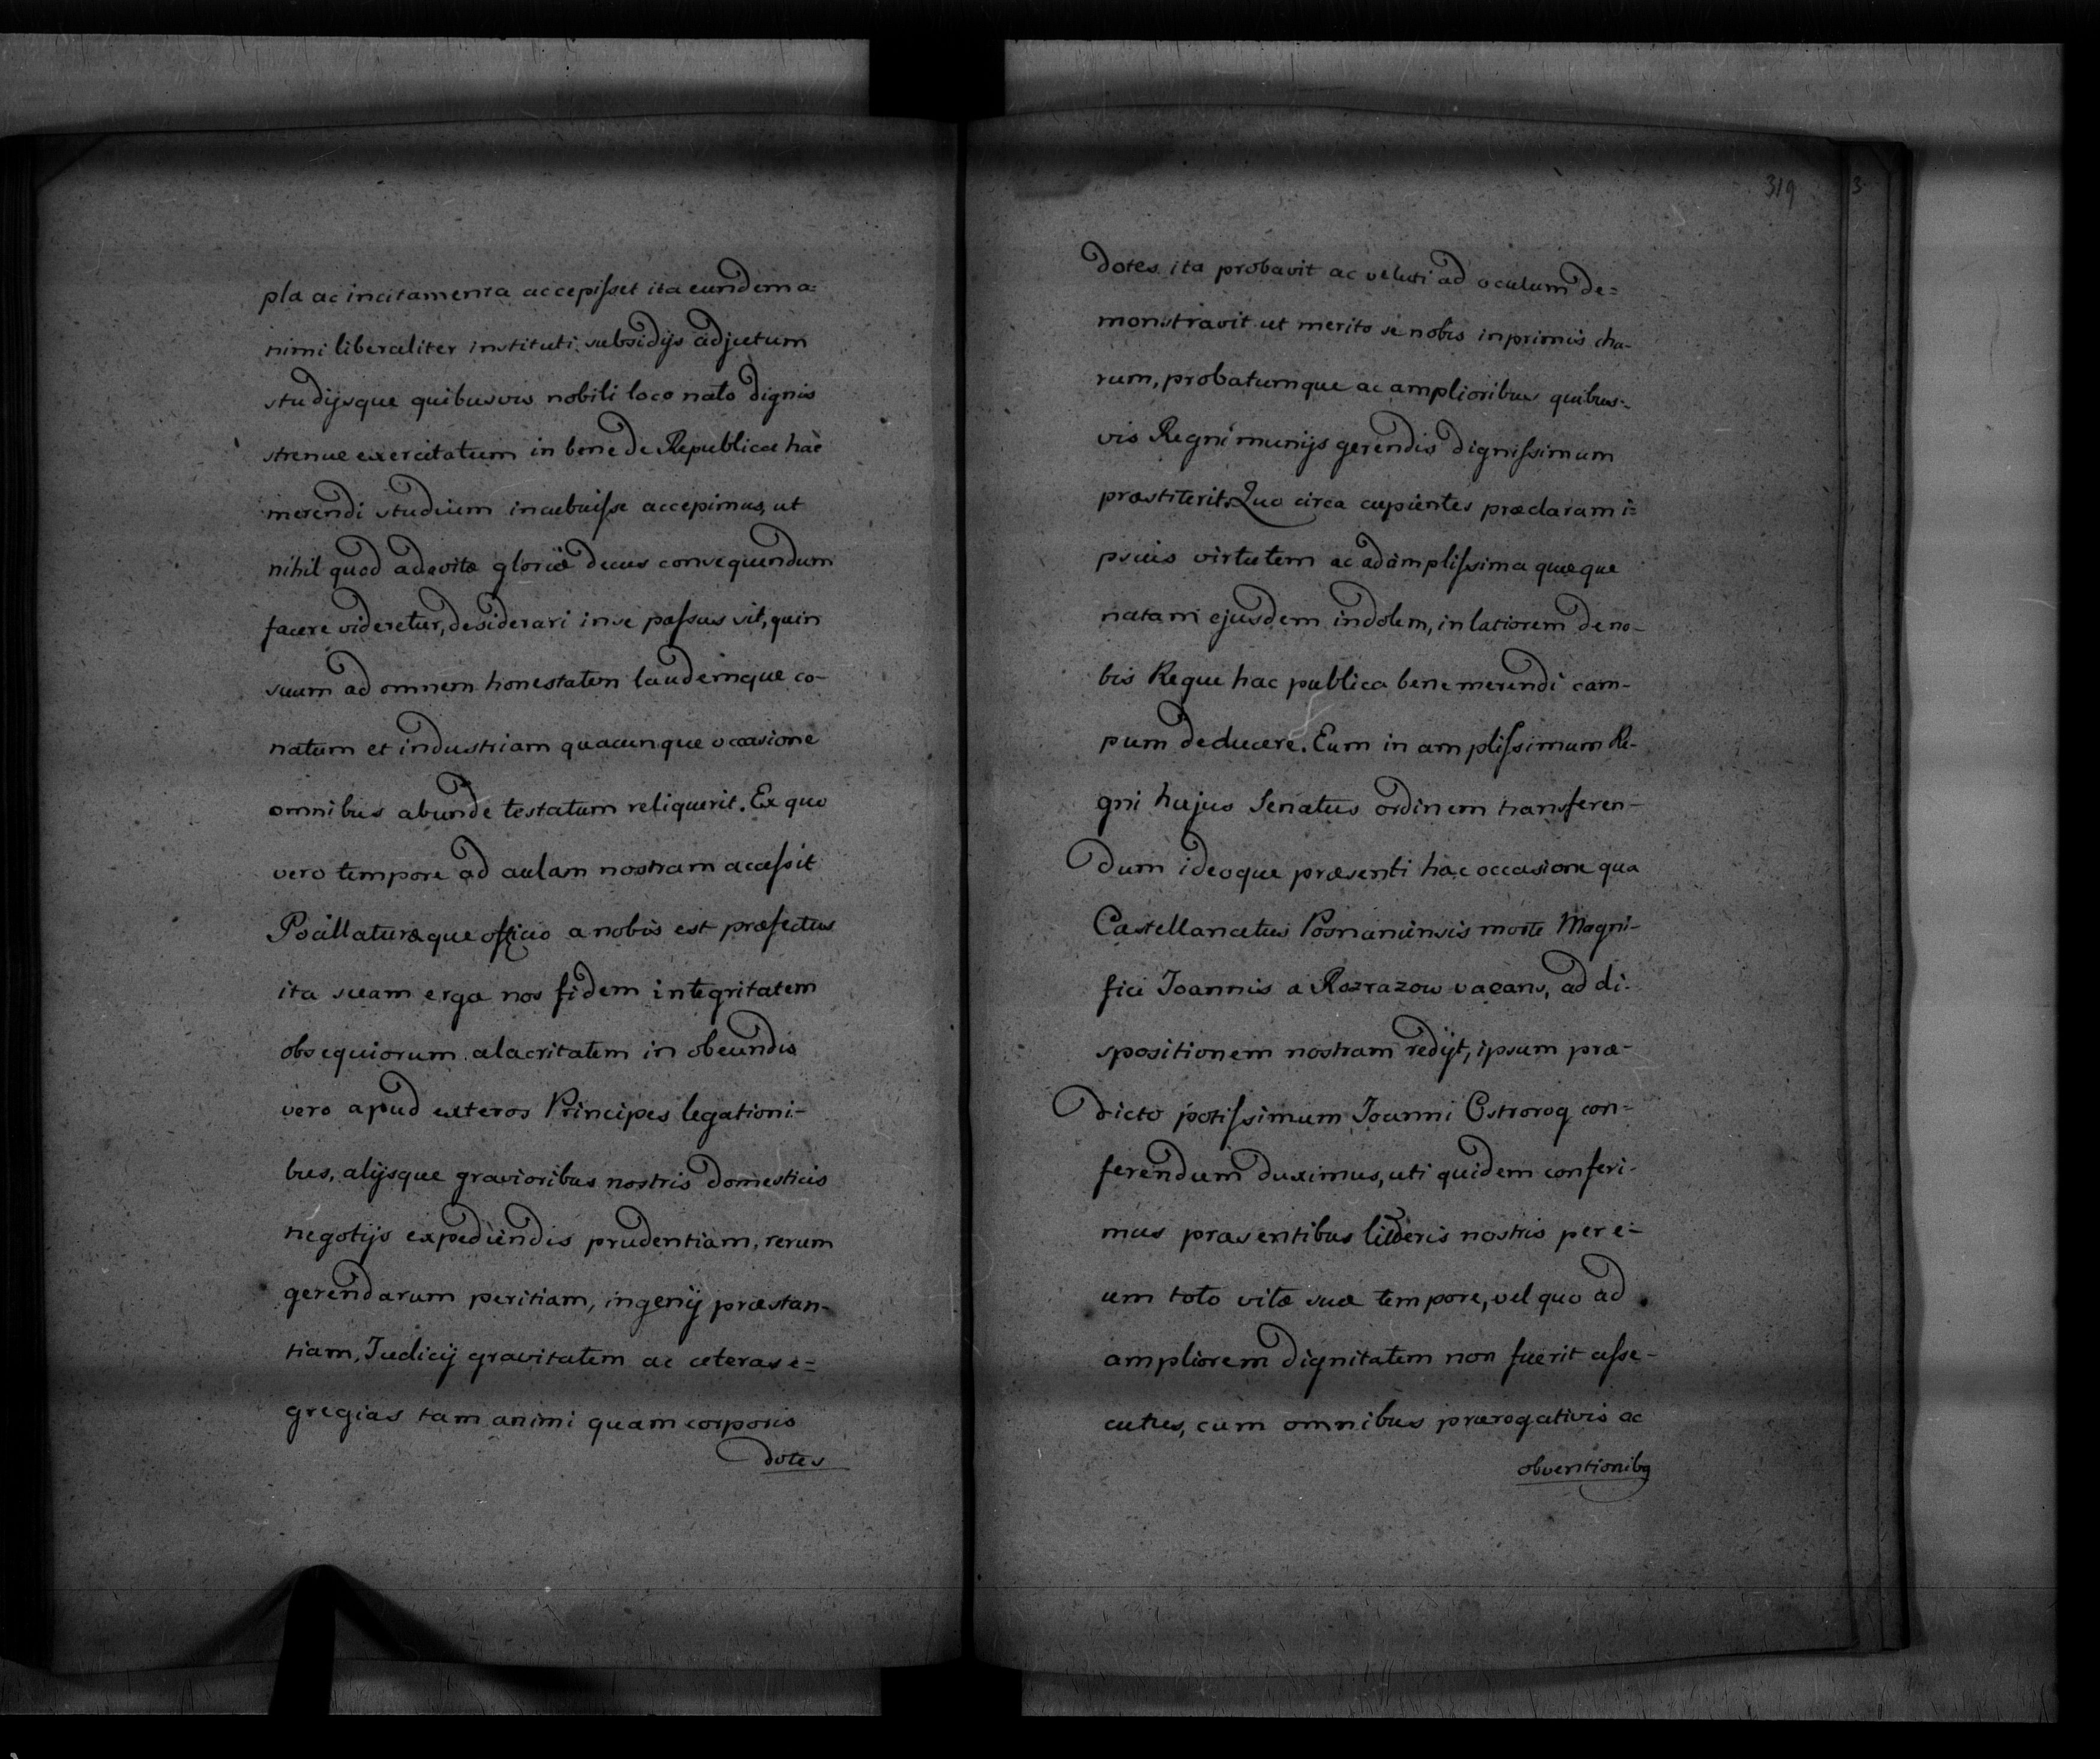 pla ac incitamenta accepisset ita eundem a=
nimi liberaliter instituti subsidijs adjutum
studijsque quibusvis nobili loco nato dignis
strenue exercitatum in bene de Republica hac
merendi studium incubuisse accepimus, ut
nihil quod ad avitæ gloriæ decus consequendum
facere videretur, desiderari in se passus sit, quin
suum ad omnem honestatem laudemque co-
natum et industriam quacunque occasione
omnibus abunde testatum reliquerit. Ex quo
vero tempore ad aulam nostram accessit
Pocillaturæque officio a nobis est præfectus
ita suam erga nos fidem integritatem
obsequiorum alacritatem in obeundis
vero apud exteros Principes legationi-
bus, alijsque gravioribus nostris domesticis
negotijs expediendis prudentiam, rerum
gerendarum peritiam, ingenij præstan-
tiam, Judicij gravitatem ac ceteras e=
gregias tam animi quam corporis
dotes
319
3
dotes ita probavit ac veluti ad oculum de=
monstravit ut merito se nobis inprimis cha-
rum, probatumque ac amplioribus quibus-
vis Regni munijs gerendis dignissimum
præstiterit. Quo circa cupientes præclaram i=
psius virtutem ac ad amplissima quæque
natam ejusdem indolem, in latiorem de no-
bis Reque hac publica bene merendi cam-
pum deducere. Eum in amplissimum Re-
gni hujus Senatus ordinem transferen-
dum ideoque præsenti hac occasione qua
Castellanatus Posnaniensis morte Magni-
fici Joannis a Rozrazow vacans, ad di-
spositionem nostram redijt, ipsum præ-
dicto potissimum Joanni Ostrorog con-
ferendum duximus, uti quidem conferi-
mus præsentibus litteris nostris per e-
um toto vitæ suæ tempore, vel quo ad
ampliorem dignitatem non fuerit asse-
cutus, cum omnibus prærogativis ac
obventionibq